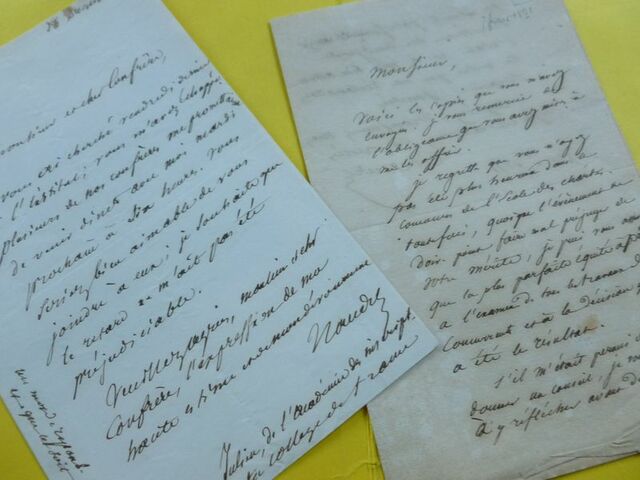 Monsieur et cher Confrère,
vous ai cherché vendredi dernier
l'Institut; vous m'avez échappé.
plusieurs de nos confrères me promettent
de venir dîner avec moi mardi
prochain à six heures. Vous
seriez bien aimable de vous
joindre à eux; je souhaite que
le retard ne m'ait pas été
préjudiciable.
Veuillez agréer, monsieur et cher
Confrère, l'expression de ma
haute estime et de mon dévouement
Naudet
Julien, de l'académie des inscript
collège de france
un mot de réponse
Monsieur,
Voici les copies que vous m'avez
envoyées. je vous remercie de
l'obligeance que vous avez mise à
me les offrir.
Je regrette que vous n'ayez
pas été plus heureux dans le
concours de l'Ecole des chartes.
toutefois, quoique l'événement ne
doive point faire mal préjuger de
votre mérite, je puis vous
que la plus parfaite équité a
à l'examen de tous les travaux de
concurrents et à la décision
a été le résultat.
S'il m'était permis
donner un conseil, je
à y réfléchir avant de